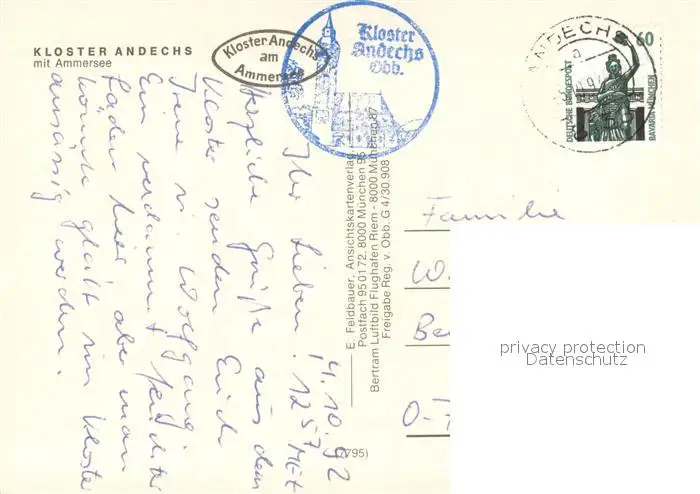 KLOSTER ANDECHS
mit Ammersee
Kloster Andechs
am
Ammersee
Kloster
Andechs
Obb.
ANDECHS
60
DEUTSCHE BUNDESPOST
BAVARIA MÜNCHEN
4.10.92
Ihr Lieben!
Herzliche Grüße aus dem
Kloster senden Euch
Irene u. Wolfgang
Ein verdammt feuchter
Laden hier aber man
könnte glatt im Kloster
ansässig werden.
E. Feldbauer, Ansichtskartenverlag,
Postfach 95 01 72, 8000 München 95
Bertram Luftbild Flughafen Riem - 8000 München 87
Freigabe Reg. v. Obb. G 4/30.908
(7795)
Familie
W.
Be
O-
privacy protection
Datenschutz